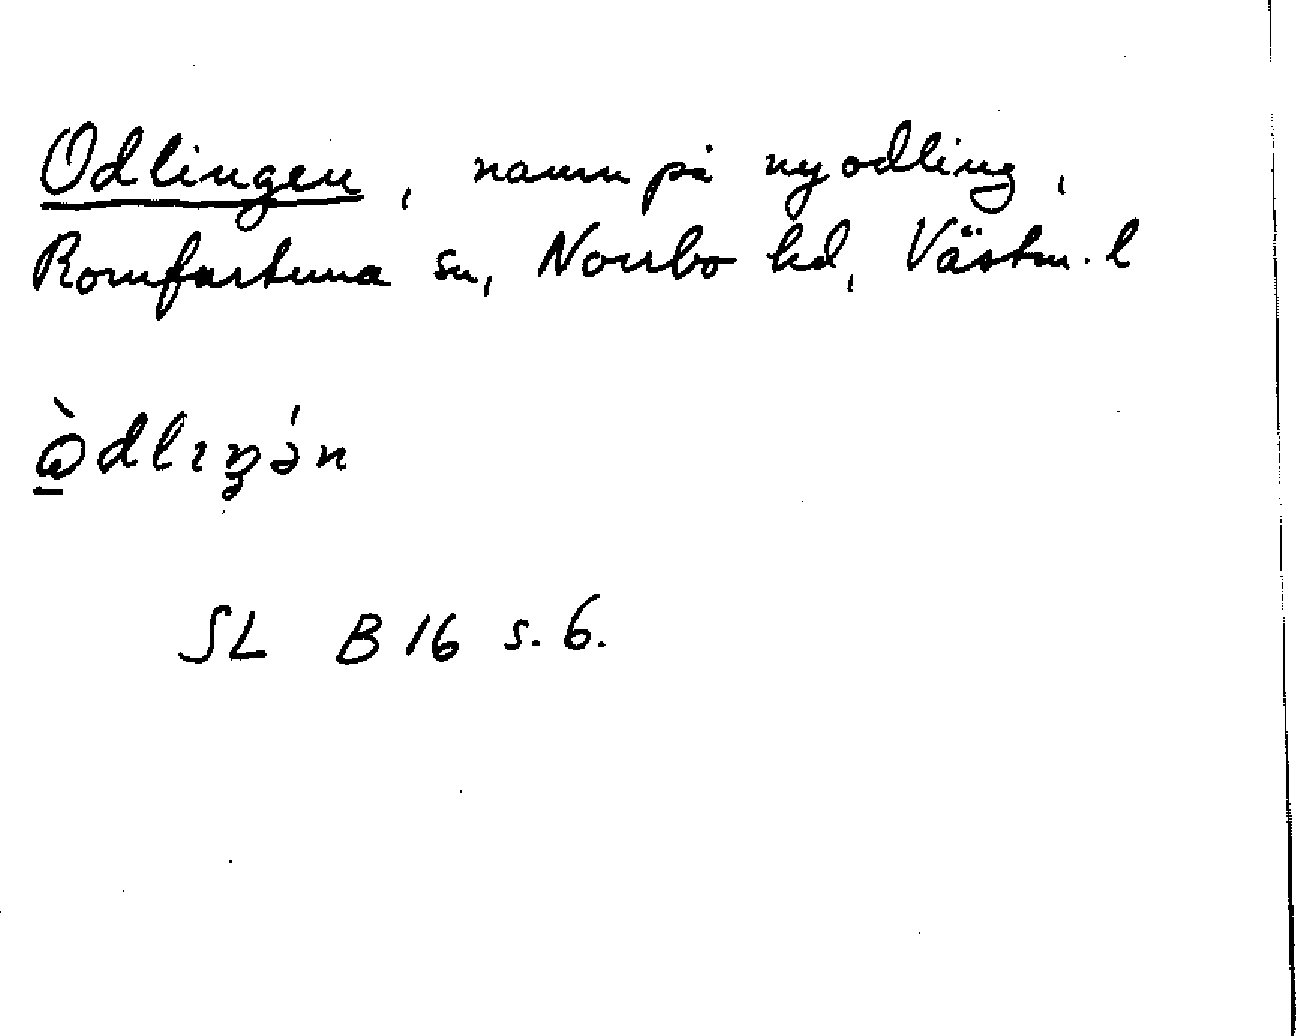 Odlingen, namn på nyodling,
Romfartuna sn, Norrbo hd, Västm. l
ɷ̠̀dlɪŋə́n
SL B 16 s. 6.